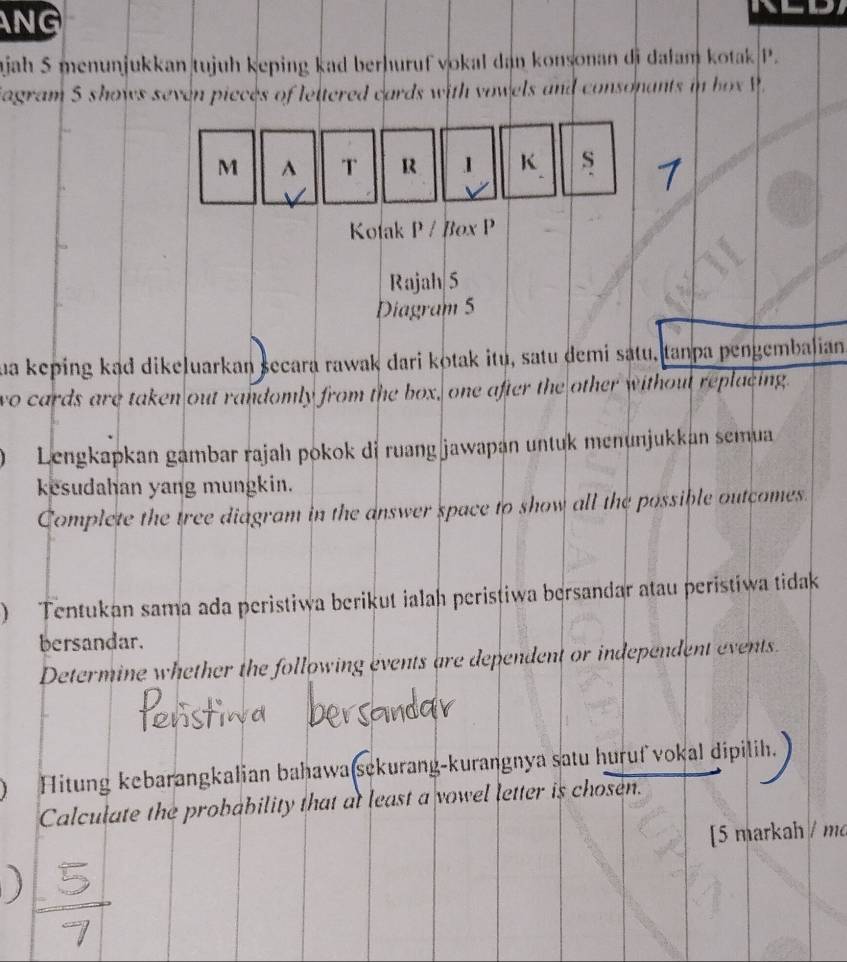 ANG
ajah 5 menunjukkan tujuh keping kad berhuruf vokal dan konsonan di dalam kotak P.
iagram 5 shows seven pieces of lettered cards with vowels and consonants in box P.
M A T R I K S 7
Kotak P / Box P
Rajah 5
Diagram 5
ua keping kad dikeluarkan secara rawak dari kotak itu, satu demi satu, tanpa pengembalian
wo cards are taken out randomly from the box, one after the other without replacing.
) Lengkapkan gambar rajah pokok di ruang jawapan untuk menunjukkan semua
kesudahan yang mungkin.
Complete the tree diagram in the answer space to show all the possible outcomes.
) Tentukan sama ada peristiwa berikut ialah peristiwa bersandar atau peristiwa tidak
bersandar.
Determine whether the following events are dependent or independent events.
Peristiwa bersandar
) Hitung kebarangkalian bahawa sekurang-kurangnya satu huruf vokal dipilih.
Calculate the probability that at least a vowel letter is chosen.
[5 markah / ma
) 5
7